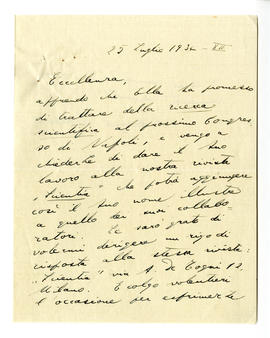 25 Luglio 1934 - XII
Eccellenza,
apprendo che Ella ha promesso
di trattare della ricerca
scientifica al prossimo Congres
so di Napoli, e vengo a
chiederLe di dare il suo
lavoro alla nostra rivista
"Scientia" che potrà aggiungere
così il suo nome illustre
a quello dei suoi collabo-
ratori. Le sarò grato di
volermi dirigere un rigo di
risposta alla stessa rivista:
"Scientia" via A. De Togni 12,
Milano. E colgo volentieri
l'occasione per esprimerLe